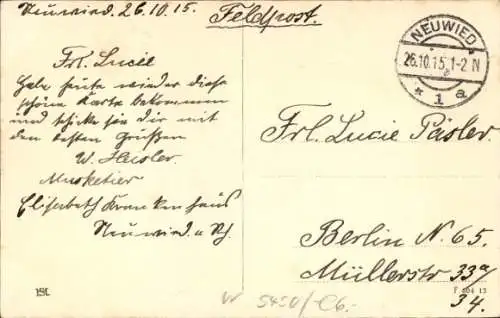 Neuwied. 26.10.15.
Feldpost.
NEUWIED
26.10.15. 1-2 N
* 1 a
Frl. Lucie
Habe heute wieder diese
schöne Karte bekommen
und schicke sie Dir mit
den besten Grüßen
W. Häusler.
Musketier
Elisabeth Krankenhaus
Neuwied a. Rh.
Frl. Lucie Päsler.
Berlin N. 65.
Müllerstr 33a/
34.
F 404 13
W 5450/-C6.-